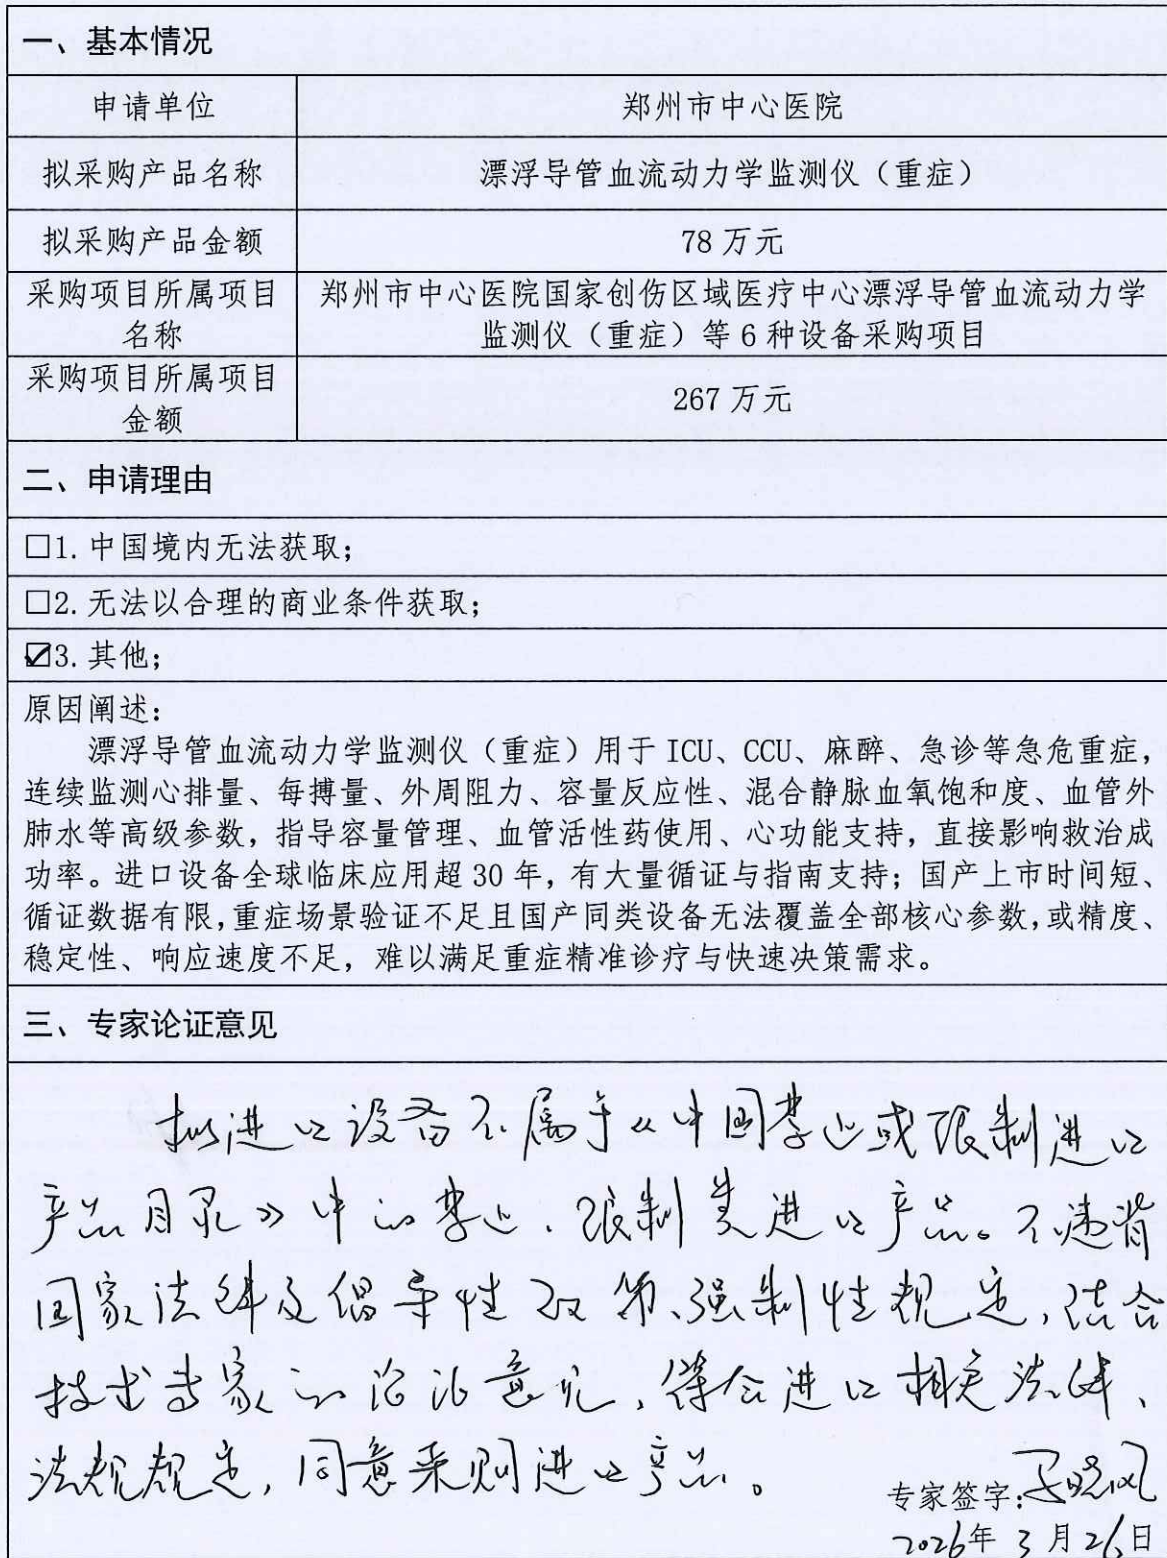 一、基本情况
申请单位
郑州市中心医院
拟采购产品名称
漂浮导管血流动力学监测仪（重症）
拟采购产品金额
78 万元
采购项目所属项目
名称
郑州市中心医院国家创伤区域医疗中心漂浮导管血流动力学
监测仪（重症）等 6 种设备采购项目
采购项目所属项目
金额
267 万元
二、申请理由
□1. 中国境内无法获取；
□2. 无法以合理的商业条件获取；
☑3. 其他；
原因阐述：
漂浮导管血流动力学监测仪（重症）用于 ICU、CCU、麻醉、急诊等急危重症，
连续监测心排量、每搏量、外周阻力、容量反应性、混合静脉血氧饱和度、血管外
肺水等高级参数，指导容量管理、血管活性药使用、心功能支持，直接影响救治成
功率。进口设备全球临床应用超 30 年，有大量循证与指南支持；国产上市时间短、
循证数据有限，重症场景验证不足且国产同类设备无法覆盖全部核心参数，或精度、
稳定性、响应速度不足，难以满足重症精准诊疗与快速决策需求。
三、专家论证意见
拟进口设备不属于《中国禁止或限制进口
产品目录》中的禁止、限制类进口产品。不违背
国家法律及倡导性政策、强制性规定，结合
技术专家的论证意见，符合进口相关法律、
法规规定，同意采购进口产品。
专家签字：
2026年 3 月 26日